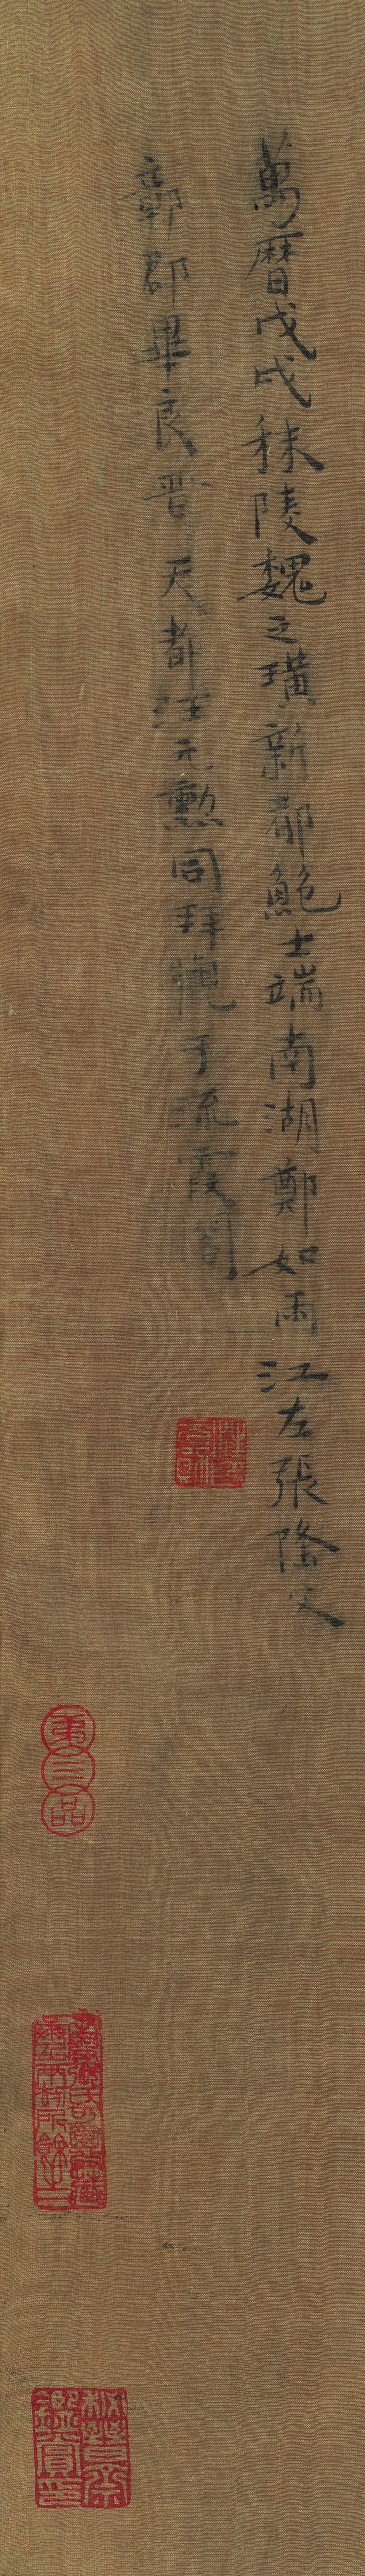 萬曆戊戌秣陵魏之璜新都鮑士端南湖鄭如雨江左張隆父
鄣郡畢良晉天都汪元勳同拜觀于流霞閣
弟三品
鑑賞